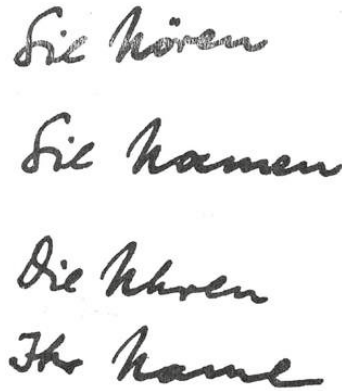 Sie hören
Sie kamen
Die Uhren
Ihr Name